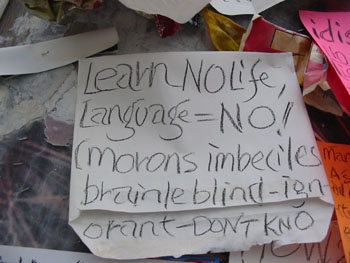 Learn NO Life,
Language = NO!!
(morons imbeciles
brainle blind-ign-
orant-DON'T KNO
idi